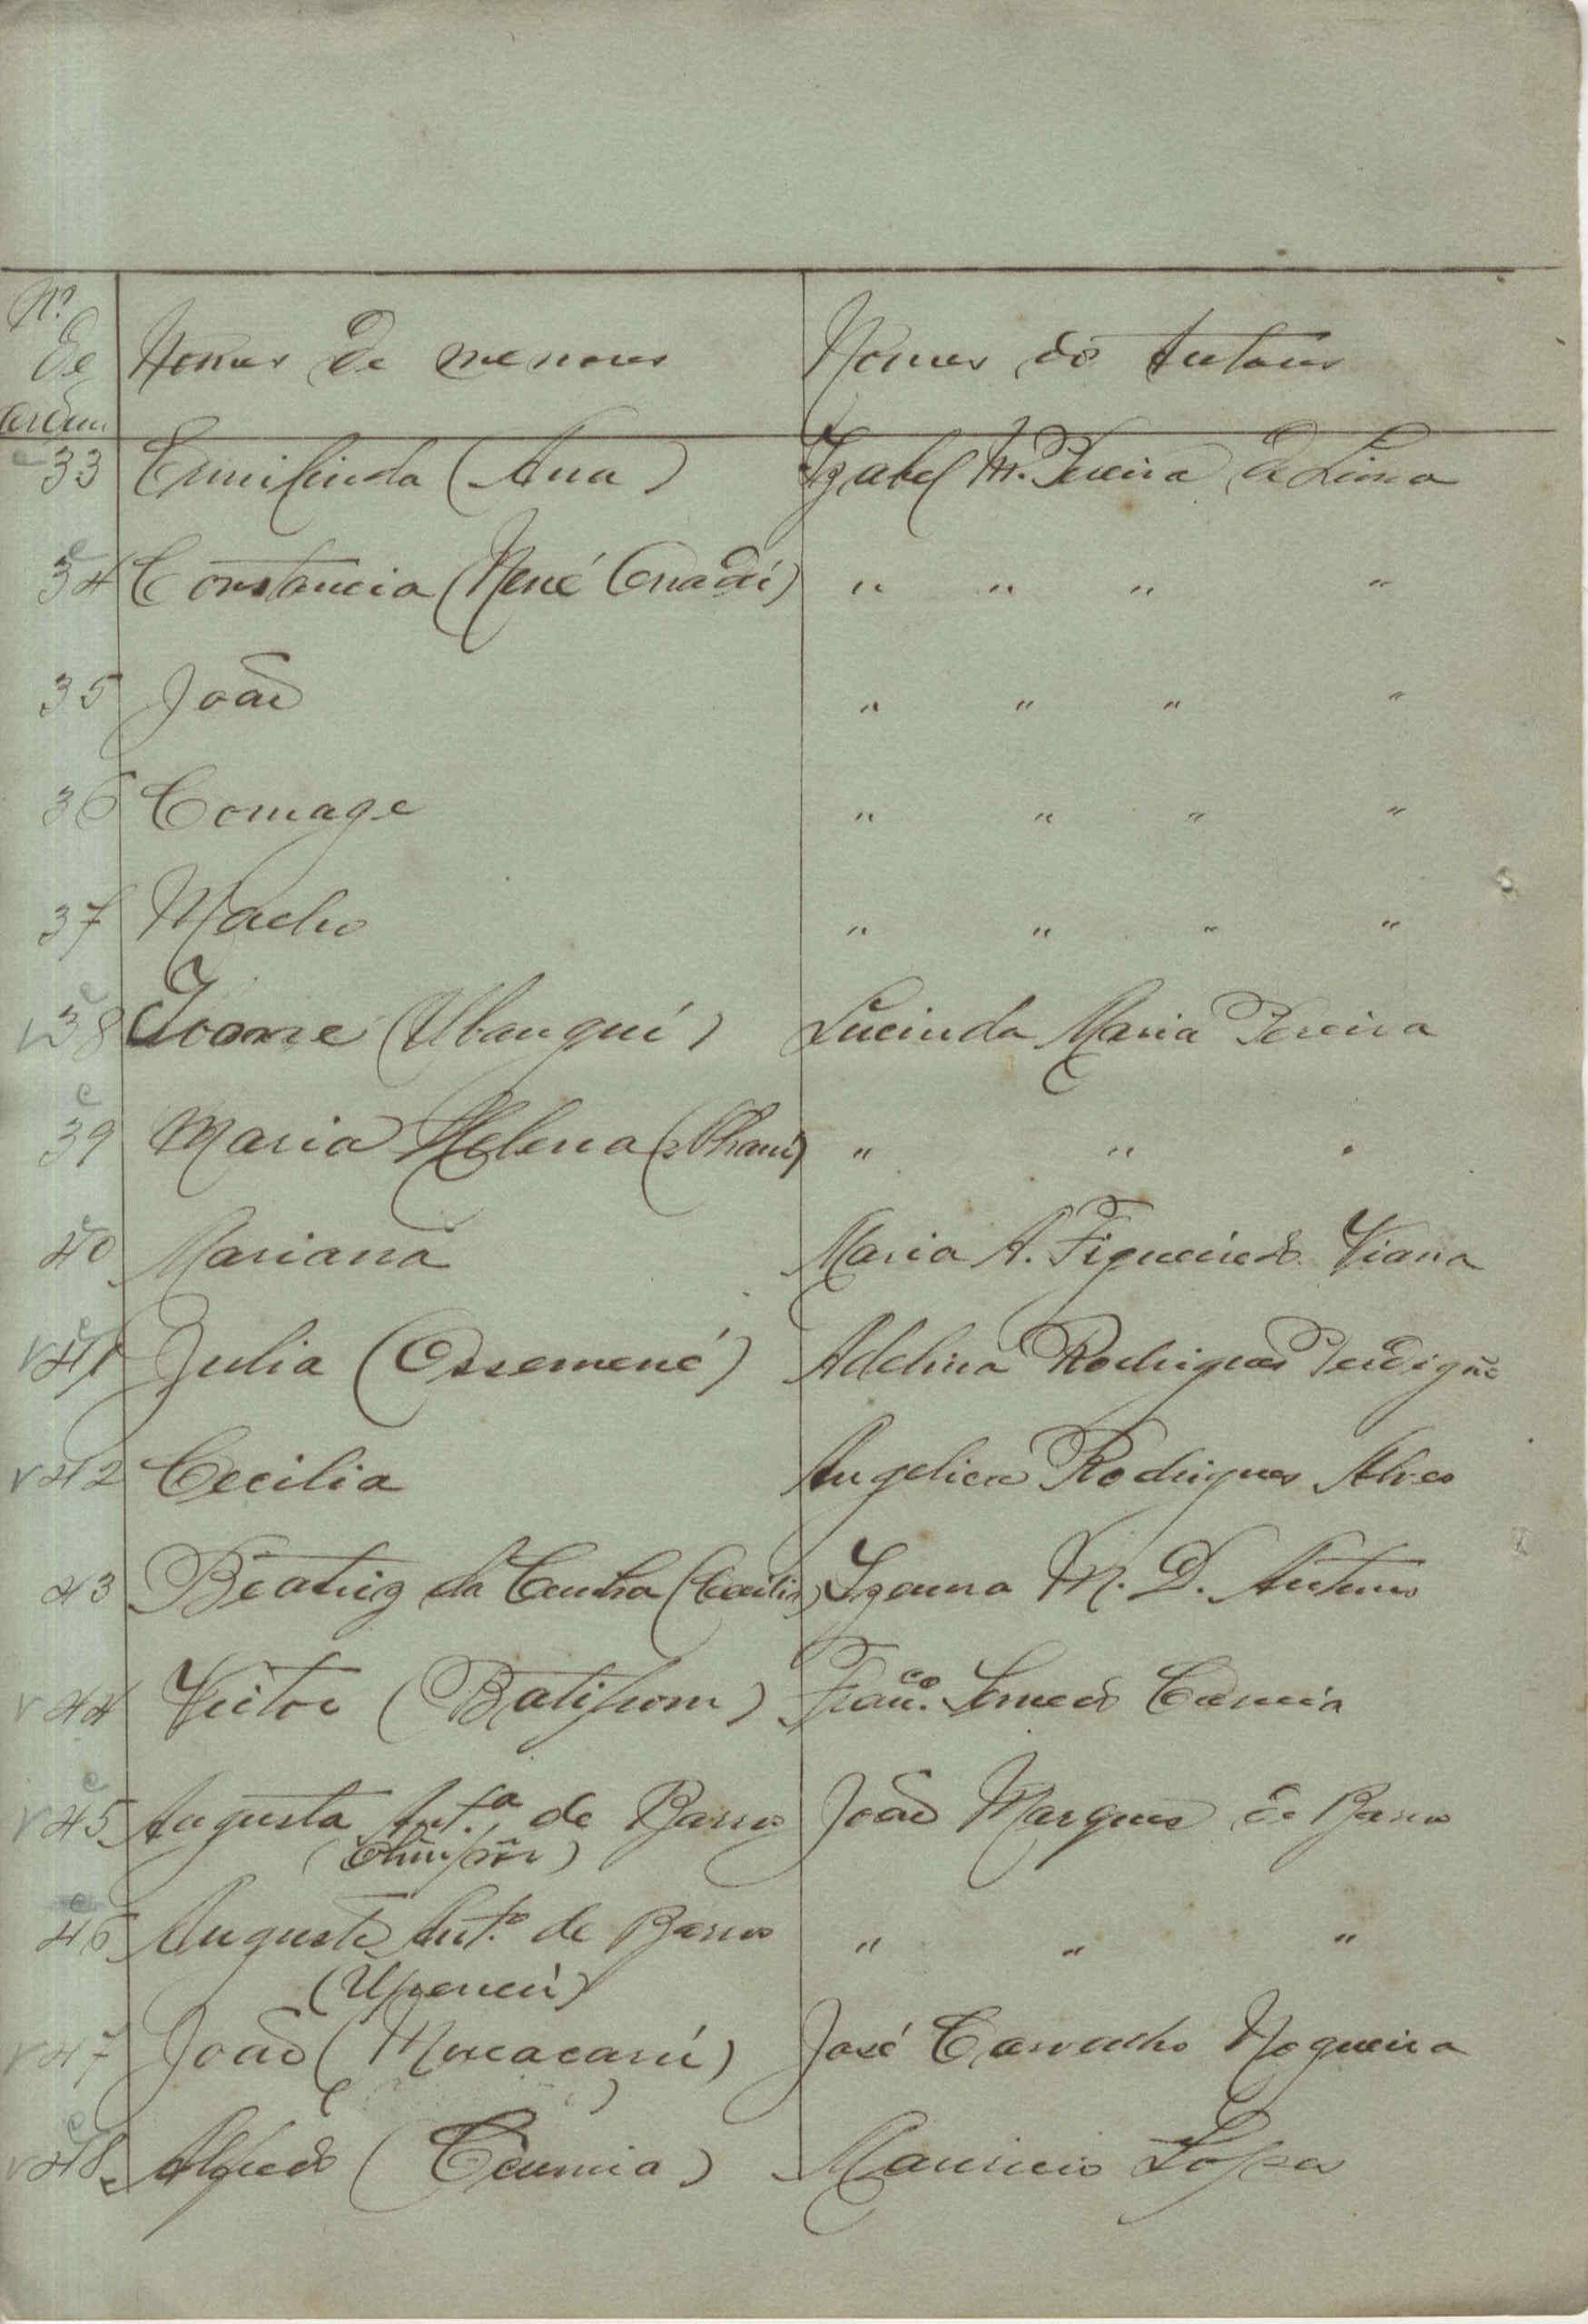 Nº
de Nomes de menores Nomes do Tutores
ordem
33 Ermilinda (Ana) Izabel M. Pereira de Lima
34 Constancia (Nené ) " " " "
35 João " " " "
36 Comage " " " "
37 Macho " " " "
38 Ivone (Ubanqui) Lucinda Maria Pereira
39 Maria Helena " " "
40 Mariana Maria A. Figueiredo Viana
41 Julia (Ossemené) Adelina Rodrigues Perdigão
42 Cecilia Angelica Rodrigues Alves
43 Beatriz da Cunha (Cecilia) Izaura M. D. Antunes
44 Victor Franco. Semedo Correia
45 Augusta Anta. de Barros João Marques de Barros
46 Augusto Anto. de Barros " " "
47 João (Moxacarú) José Carvalho Nogueira
48 Alfredo Mauricio Lopes